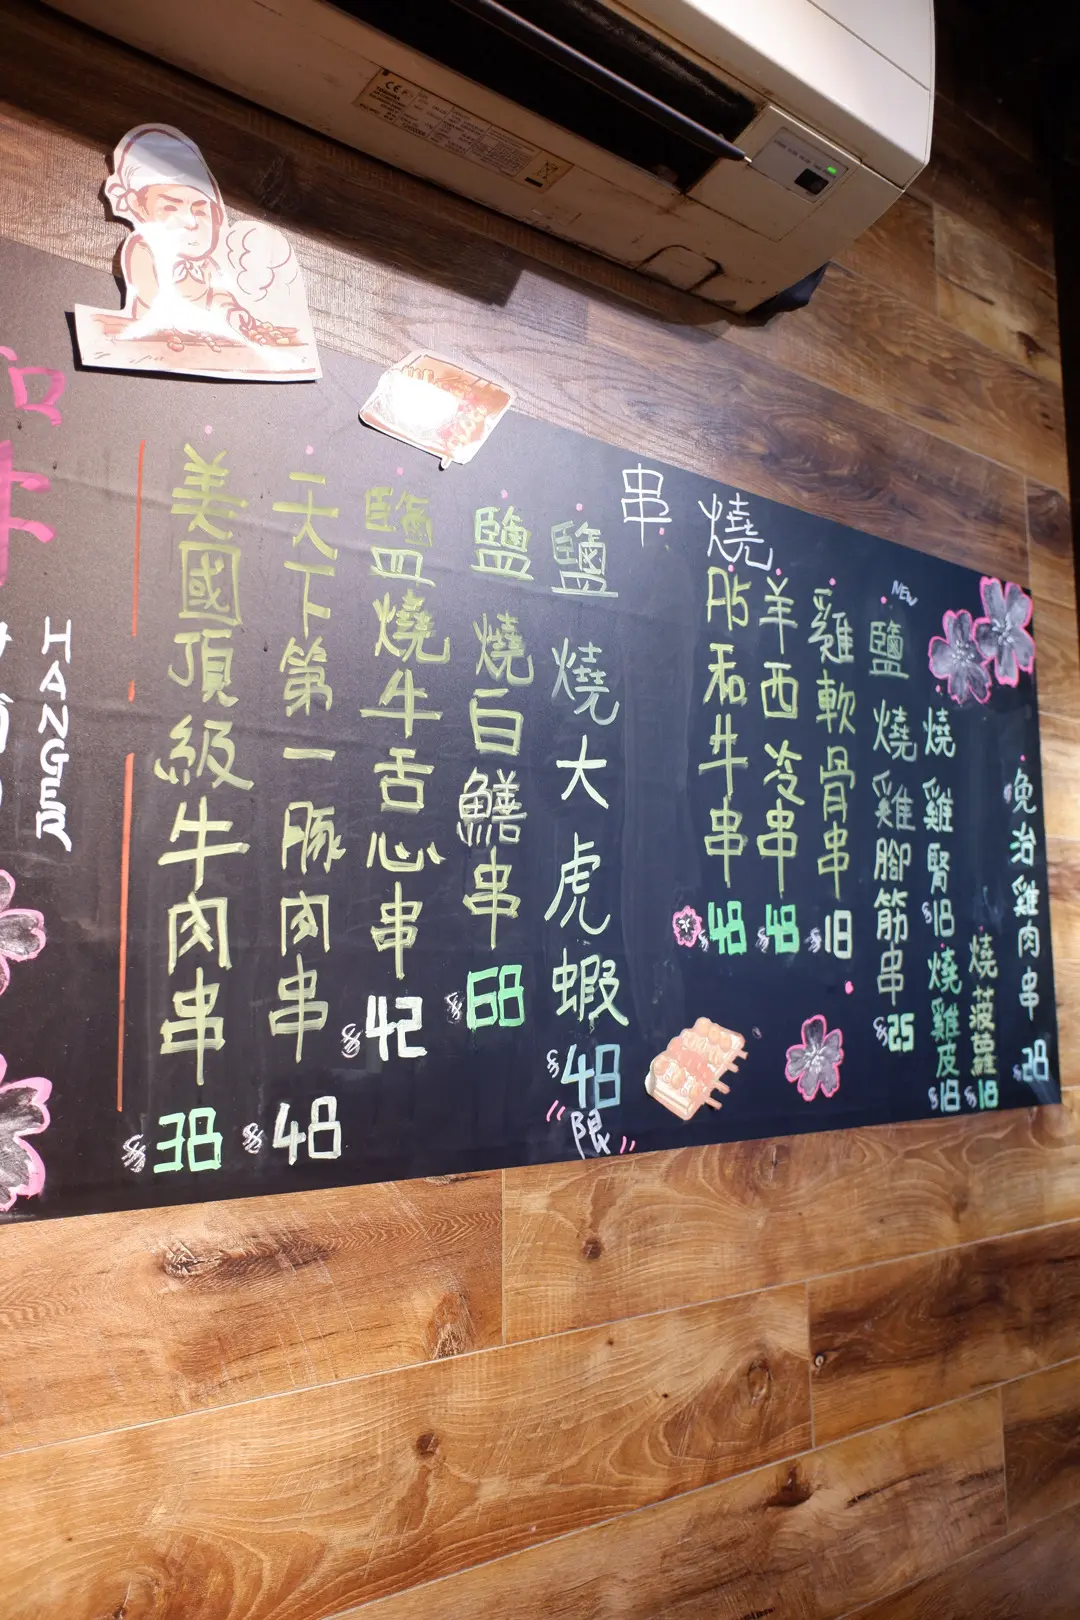 串燒
免治雞肉串 $28
燒菠蘿 $18
燒雞腎 $18
燒雞皮 $18
NEW
鹽燒雞腳筋串 $25
雞軟骨串 $18
羊西冷串 $48
A5和牛串 $48
鹽燒大虎蝦 $48
"限"
鹽燒白鱔串 $68
鹽燒牛舌心串 $42
天下第一豚肉串 $48
美國頂級牛肉串 $38
HANGER